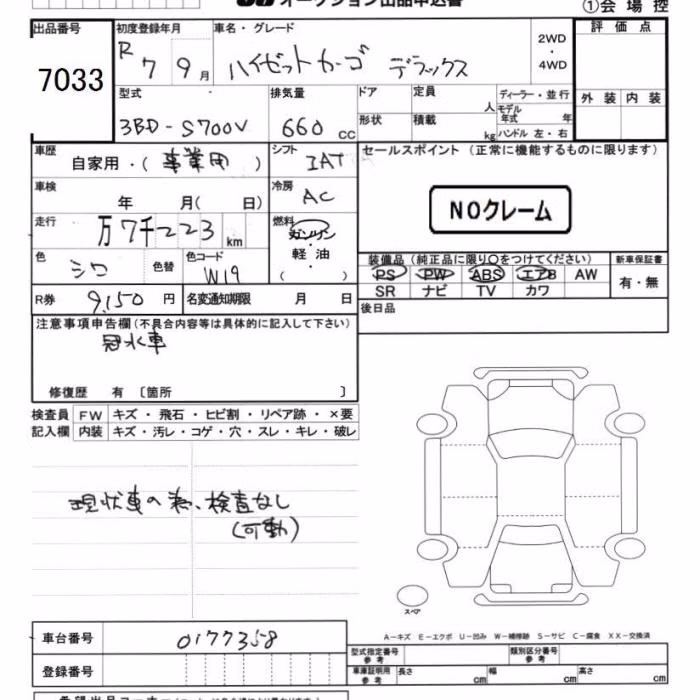 オークション出品申込書
①会場控
出品番号 7033
初度登録年月 R 7 9 月
車名・グレード ハイゼットカーゴ デラックス
2WD ・ 4WD
評価点
外装 内装
型式 3BD-S700V
排気量 660 cc
ドア
形状
定員 人
積載 kg
ディーラー・並行
モデル年式 年
ハンドル 左・右
車歴 自家用・(事業用)
シフト IAT
セールスポイント (正常に機能するものに限ります)
NOクレーム
車検 年 月( 日)
冷房 AC
走行 万7千223 km
燃料 ガソリン ・ 軽油 ・ ( )
色 シロ 色替
色コード W19
装備品 (純正品に限り○をつけてください)
PS PW ABS エアB AW
SR ナビ TV カワ
新車保証書 有・無
R券 9,150 円
名変通知期限 月 日
後日品
注意事項申告欄(不具合内容等は具体的に記入して下さい)
冠水車
修復歴 有 〔箇所 〕
検査員記入欄
FW キズ・飛石・ヒビ割・リペア跡・×要
内装 キズ・汚レ・コゲ・穴・スレ・キレ・破レ
現状車の為、検査なし
(可動)
スペア
A-キズ E-エクボ U-凹み W-補修跡 S-サビ C-腐食 XX-交換済
車台番号 0177358
登録番号
型式指定番号 参考
類別区分番号 参考
車庫証明用 参考 長さ cm 幅 cm 高さ cm